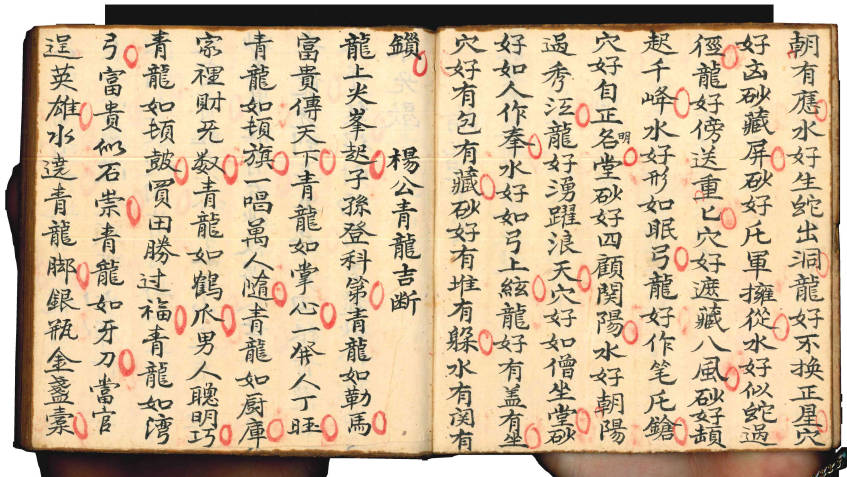 朝有應水好生蛇出洞龍好不換正星穴
好玄砂藏屏砂好氏軍擁從水好似蛇過
徑龍好傍送重匕穴好遮藏八風砂好頡
起千峰水好形如眠弓龍好作笔氏鎗
穴好自正名明堂砂好四顧関陽水好朝陽
過秀江龍好湧躍浪天穴好如僧坐堂砂
好如人作奉水好如弓上絃龍好有盖有坐
穴好有包有藏砂好有堆有躲水有関有
鎖 楊公青龍吉断
龍上尖峯起子孫登科第青龍如勒馬
富貴傳天下青龍如掌心一発人丁旺
青龍如頓旗一唱萬人隨青龍如厨庫
家裡財无数青龍如鶴爪男人聰明巧
青龍如頓鼓買田勝过福青龍如湾
弓富貴似石崇青龍如牙刀當官
逞英雄水遶青龍脚銀瓶金盞